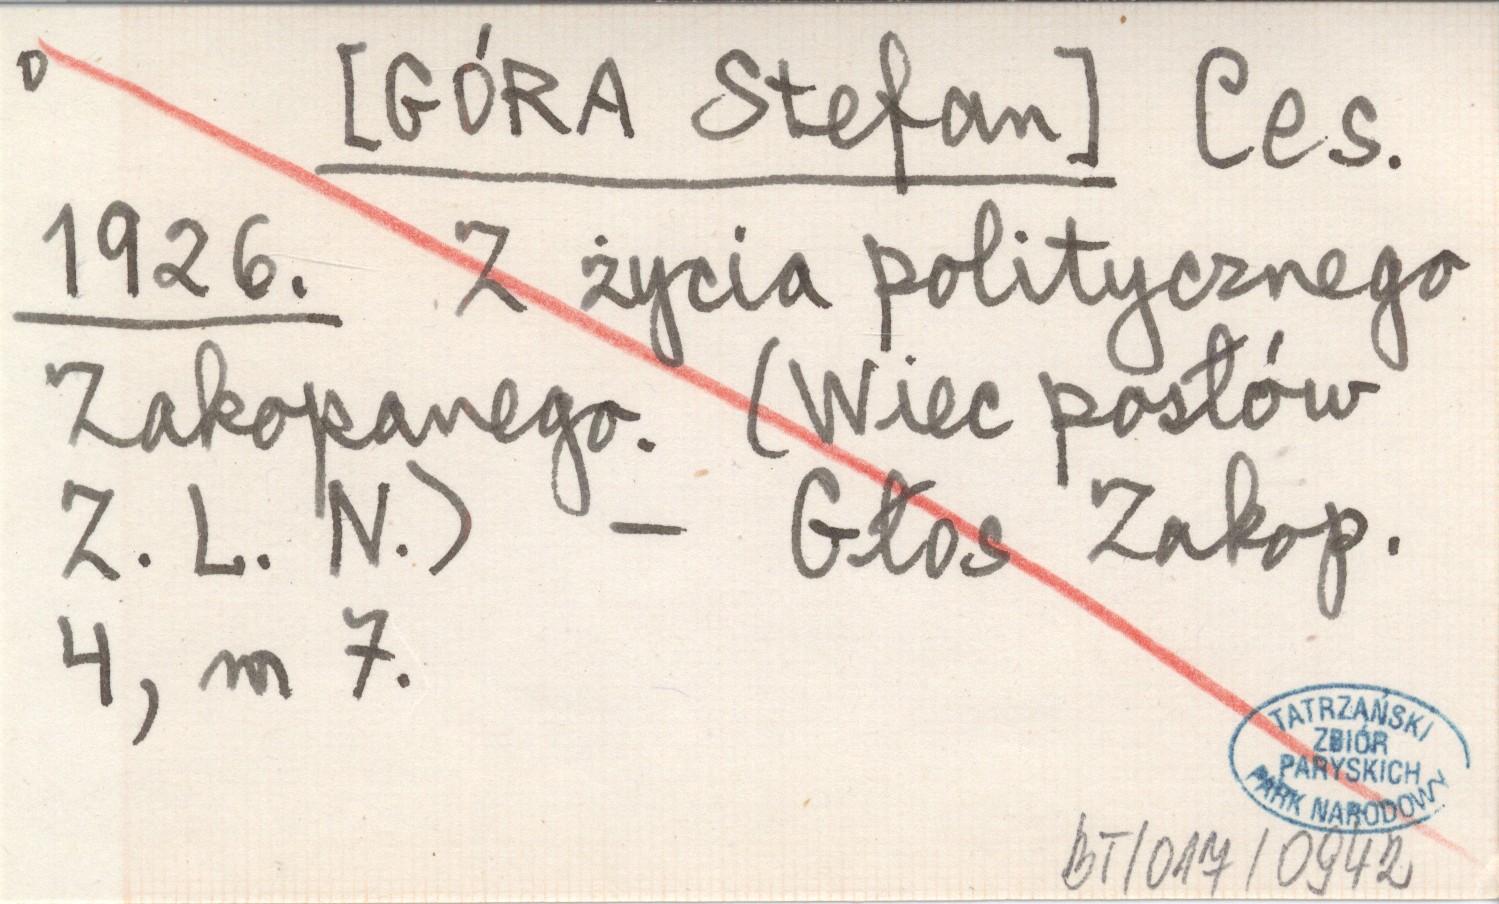 D [GÓRA Stefan] Ces.
1926. Z życia politycznego
Zakopanego. (Wiec posłów
Z. L. N.) — Głos Zakop.
4, nr 7.
TATRZAŃSKI
ZBIÓR
PARYSKICH
PARK NARODOWY
BT/017/0942